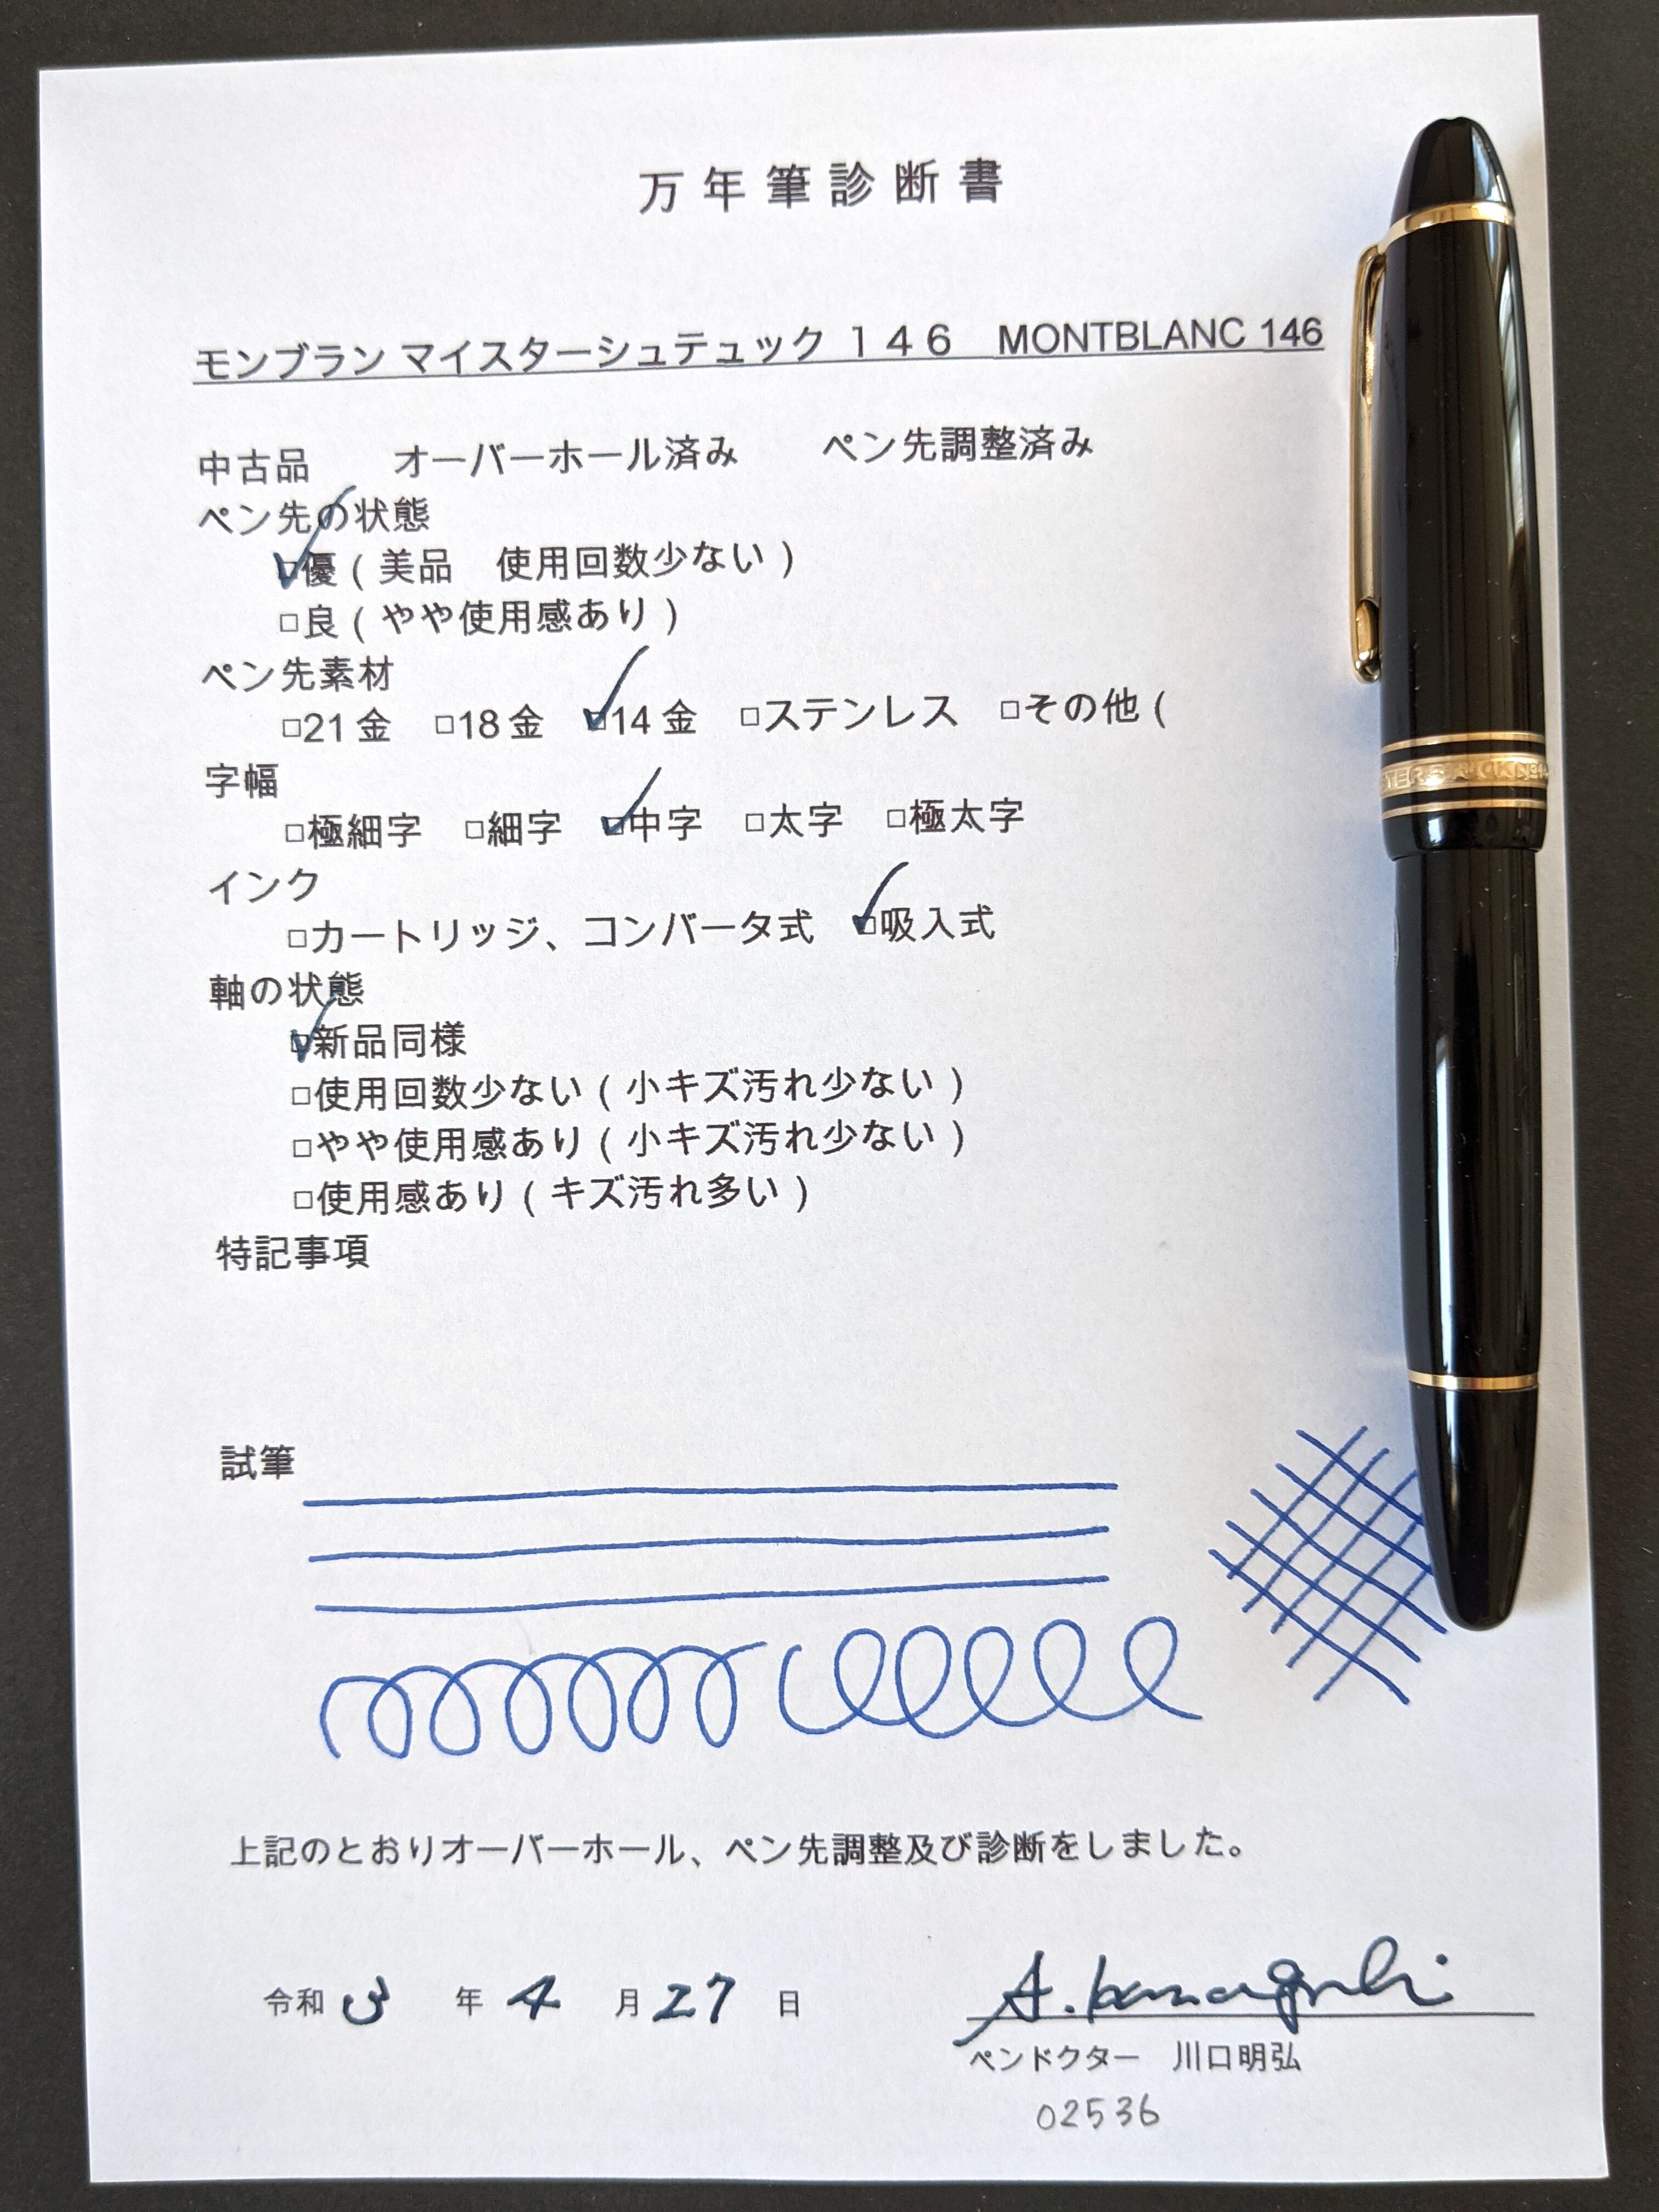 万年筆診断書
モンブラン マイスターシュテュック 146 MONTBLANC 146
中古品 オーバーホール済み ペン先調整済み
ペン先の状態
☑優(美品 使用回数少ない)
□良(やや使用感あり)
ペン先素材
□21金 □18金 ☑14金 □ステンレス □その他(
字幅
□極細字 □細字 ☑中字 □太字 □極太字
インク
□カートリッジ、コンバータ式 ☑吸入式
軸の状態
☑新品同様
□使用回数少ない(小キズ汚れ少ない)
□やや使用感あり(小キズ汚れ少ない)
□使用感あり(キズ汚れ多い)
特記事項
試筆
上記のとおりオーバーホール、ペン先調整及び診断をしました。
令和 3 年 4 月 27 日
A. Kawaguchi
ペンドクター 川口明弘
02536